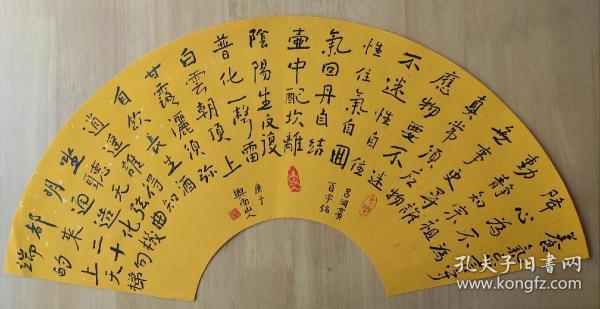 養氣忘言守
降心為不為
動靜知宗祖
無事更尋誰
真常須應物
應物要不迷
不迷性自住
性住氣自囬
氣回丹自結
壷中配坎離
陰陽生反復
普化一聲雷
白雲朝頂上
甘露灑須弥
自飲長生酒
逍遥誰得知
坐聽无弦曲
明通造化機
都来二十句
端的上天梯
呂洞賓
百字銘
庚子
山人
孔夫子旧書网
www.kongfz.com